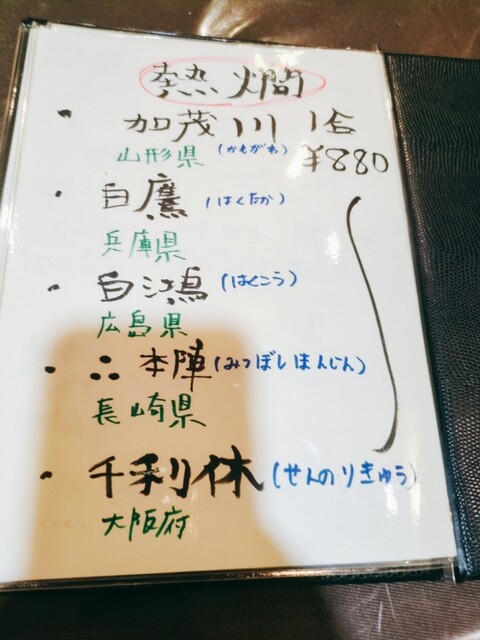 熱燗
・加茂川 1合
山形県 (かもがわ) ¥880
・白鷹 (はくたか)
兵庫県
・白鴻 (はくこう)
広島県
・∴本陣 (みつぼしほんじん)
長崎県
・千利休 (せんのりきゅう)
大阪府